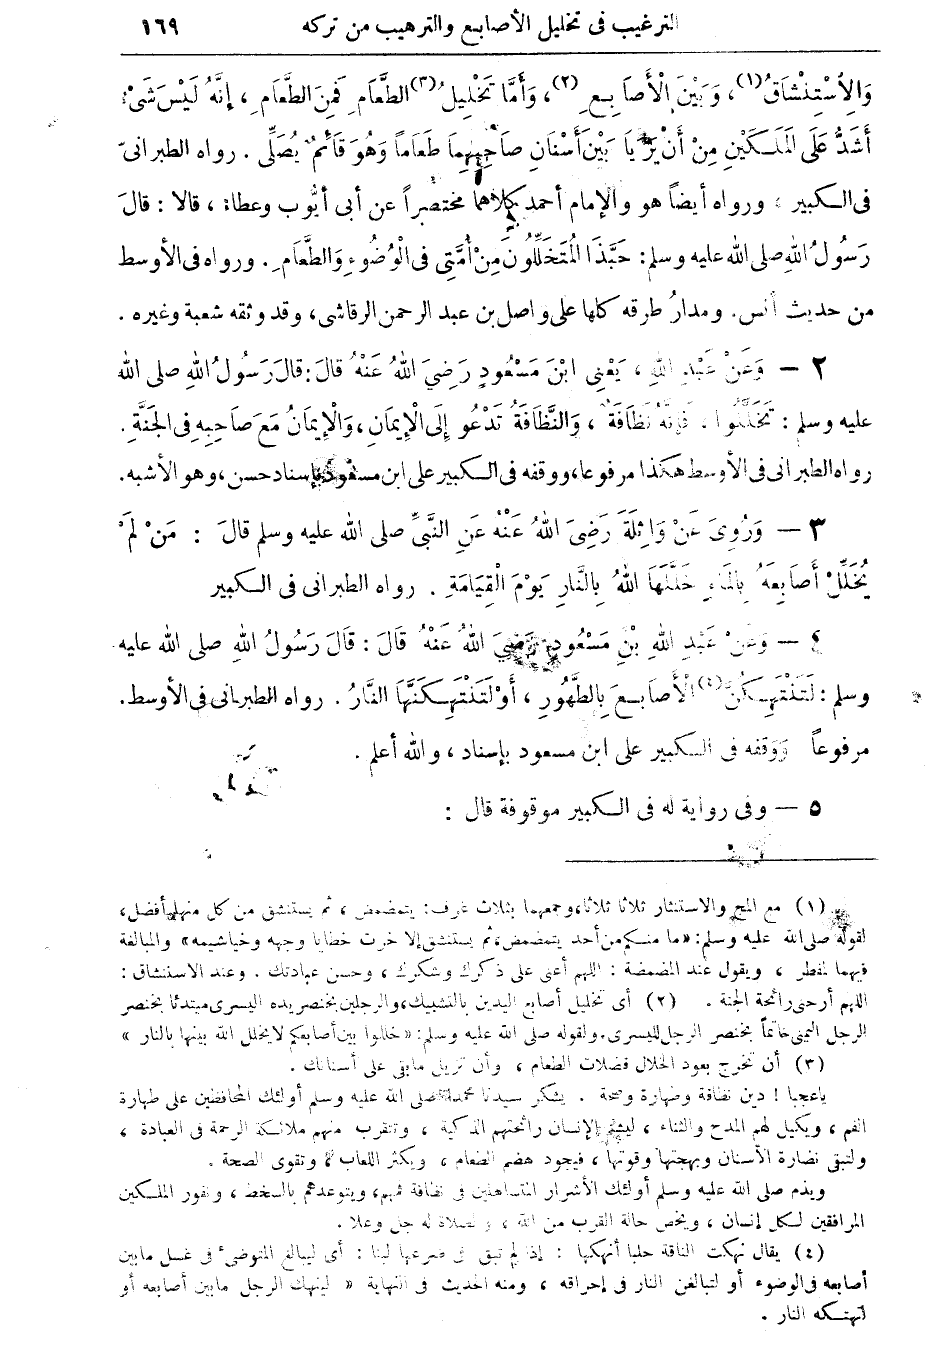 الترغيب فى تخليل الأصابع والترهيب من تركه ١٦٩
وَالِاسْتِنْشَاقُ(١)، وَبَيْنَ الْأَصَابِعِ (٢)، وَأَمَّا تَخْلِيلُ(٣) الطَّعَامِ فَمِنَ الطَّعَامِ، إِنَّهُ لَيْسَ شَىْءٌ
أَشَدُّ عَلَى الْمَلَكَيْنِ مِنْ أَنْ يَرَيَا بَيْنَ أَسْنَانِ صَاحِبِهِمَا طَعَاماً وَهُوَ قَائِمٌ يُصَلِّى. رواه الطبرانىّ
فى الكبير، ورواه أيضاً هو والإمام أحمد كلاهما مختصراً عن أبى أيوب وعطاء، قالا: قالَ
رَسُولُ اللهِ صلى الله عليه وسلم: حَبَّذَا الْمُتَخَلِّلُونَ مِنْ أُمَّتِى فى الْوُضُوءِ وَالطَّعَامِ. ورواه فى الأوسط
من حديث أنس. ومدارُ طرقه كلها على واصل بن عبد الرحمن الرقاشى، وقد وثقه شعبة وغيره.
٢ — وَعَنْ عَبْدِ اللهِ، يَعْنِى ابْنَ مَسْعُودٍ رَضِىَ اللهُ عَنْهُ قَالَ: قالَ رَسُولُ اللهِ صلى الله
عليه وسلم: تَخَلَّلُوا، فَإِنَّهُ نَظَافَةٌ، وَالنَّظَافَةُ تَدْعُو إِلَى الْإِيمَانِ، وَالْإِيمَانُ مَعَ صَاحِبِهِ فى الجَنَّةِ.
رواه الطبرانى فى الأوسط هكذا مرفوعا، ووقفه فى الكبير على ابن مسعود بإسناد حسن، وهو الأشبه.
٣ — وَرُوِىَ عَنْ وَاثِلَةَ رَضِىَ اللهُ عَنْهُ عَنِ النَّبِىِّ صلى الله عليه وسلم قالَ: مَنْ لَمْ
يُخَلِّلْ أَصَابِعَهُ بِالْمَاءِ خَلَّلَهَا اللهُ بِالنَّارِ يَوْمَ الْقِيَامَةِ. رواه الطبرانى فى الكبير
٤ — وَعَنْ عَبْدِ اللهِ بْنِ مَسْعُودٍ رَضِىَ اللهُ عَنْهُ قَالَ: قَالَ رَسُولُ اللهِ صلى الله عليه
وسلم: لَتَنْتَهِكُنَّ(٤) الْأَصَابِعَ بِالطَّهُورِ، أَوْ لَتَنْتَهِكَنَّهَا النَّارُ. رواه الطبرانى فى الأوسط.
مرفوعاً وَوَقفه فى الكبير على ابن مسعود بإسناد، والله أعلم.
٥ — وفى رواية له فى الكبير موقوفة قال:
(١) مع المج والاستنثار ثلاثا ثلاثا، وجمعهما بثلاث غرف: يتمضمض، ثم يستنشق من كل منها أفضل،
لقوله صلى الله عليه وسلم: «ما منكم من أحد يتمضمض، ثم يستنشق إلا خرت خطايا وجهه وخياشيمه» والمبالغة
فيهما لمفطر، ويقول عند المضمضة: اللهم أعنى على ذكرك وشكرك، وحسن عبادتك. وعند الاستنشاق:
اللهم أرحنى رائحة الجنة. (٢) أى تخليل أصابع اليدين بالتشبيك، والرجلين بخنصر يده اليسرى مبتدئا بخنصر
الرجل اليمنى خاتماً بخنصر الرجل لليسرى. ولقوله صلى الله عليه وسلم: «خللوا بين أصابعكم لا يخلل الله بينها بالنار»
(٣) أن تخرج بعود الخلال فضلات الطعام، وأن تزيل مابقى على أسنانك.
ياعجبا! دين نظافة وطهارة وصحة. يشكر سيدنا محمد صلى الله عليه وسلم أولئك المحافظين على طهارة
الفم، ويكيل لهم المدح والثناء، ليشم الإنسان رائحتهم الذكية، وتتقرب منهم ملائكة الرحمة فى العبادة،
ولتبقى نضارة الأسنان وبهجتها وقوتها، فيجود هضم الطعام، ويكثر اللعاب وتقوى الصحة.
ويذم صلى الله عليه وسلم أولئك الأشرار المتساهلين فى نظافة فمهم، ويتوعدهم بالسخط، ونفور الملكين
المرافقين لكل إنسان، ويخص حالة القرب من الله، والصلاة له جل وعلا.
(٤) يقال نهكت الناقة حلبا أنهكها: إذا لم تبق فى ضرعها لبنا: أى ليبالغ المتوضىء فى غسل مابين
أصابعه فى الوضوء أو لتبالغن النار فى إحراقه، ومنه الحديث فى النهاية « لينهك الرجل مابين أصابعه أو
لتنهكنه النار.